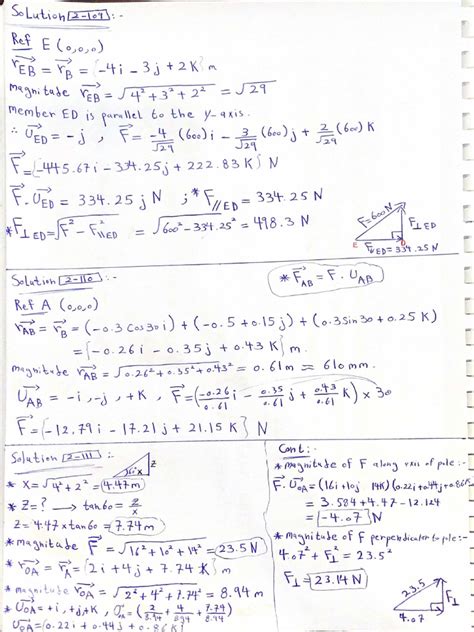 Solution 2-109 :-
Ref E (0,0,0)
r⃗EB = r⃗B = {-4i - 3j + 2K} m
magnitude r⃗EB = √4² + 3² + 2² = √29
member ED is parallel to the y-axis.
∴ U⃗ED = -j, F⃗ = -4/√29 (600)i - 3/√29 (600)j + 2/√29 (600)K
F⃗ = {-445.67i - 334.25j + 222.83K} N
F⃗ . U⃗ED = 334.25 j N ; * F//ED = 334.25 N
* F⊥ED = √F² - F²//ED = √600² - 334.25² = 498.3 N
F=600N
F⊥ED
E
D
F//ED = 334.25 N
Solution 2-110 :-
* F⃗AB = F . UAB
Ref A (0,0,0)
r⃗AB = r⃗B = (-0.3 Cos30 i) + (-0.5 + 0.15j) + (0.3Sin30 + 0.25 K)
= {-0.26i - 0.35j + 0.43K} m.
magnitude r⃗AB = √0.26² + 0.35² + 0.43² = 0.61m ≈ 610mm.
U⃗AB = -i, -j, +K, F⃗ = (-0.26/0.61 i - 0.35/0.61 j + 0.43/0.61 K) × 30
F⃗ = {-12.79i - 17.21j + 21.15K} N
Solution 2-111 :-
* X = √4² + 2² = 4.47m
Z
X
* Z = ? → tan60 = Z/X
Z = 4.47 × tan60 = 7.74m
* magnitude F⃗ = √16² + 10² + 14² = 23.5 N
* r⃗OA = r⃗A = {2i + 4j + 7.74K} m
* magnitude r⃗OA = √2² + 4² + 7.74² = 8.94 m
* U⃗OA = +i, +j, +K, U⃗OA = (2/8.94 + 4/8.94 + 7.74/8.94)
U⃗OA = (0.22i + 0.44j + 0.86K)
Cont :-
* magnitude of F along axis of pole :-
F⃗ . U⃗OA = (16i + 10j 14K) (0.22i + 0.44j + 0.86K
= 3.584 + 4.47 - 12.124
= -4.07 N
* magnitude of F perpendicular to pole :-
4.07² + F⊥² = 23.5²
F⊥ = 23.14 N
23.5
F⊥
4.07